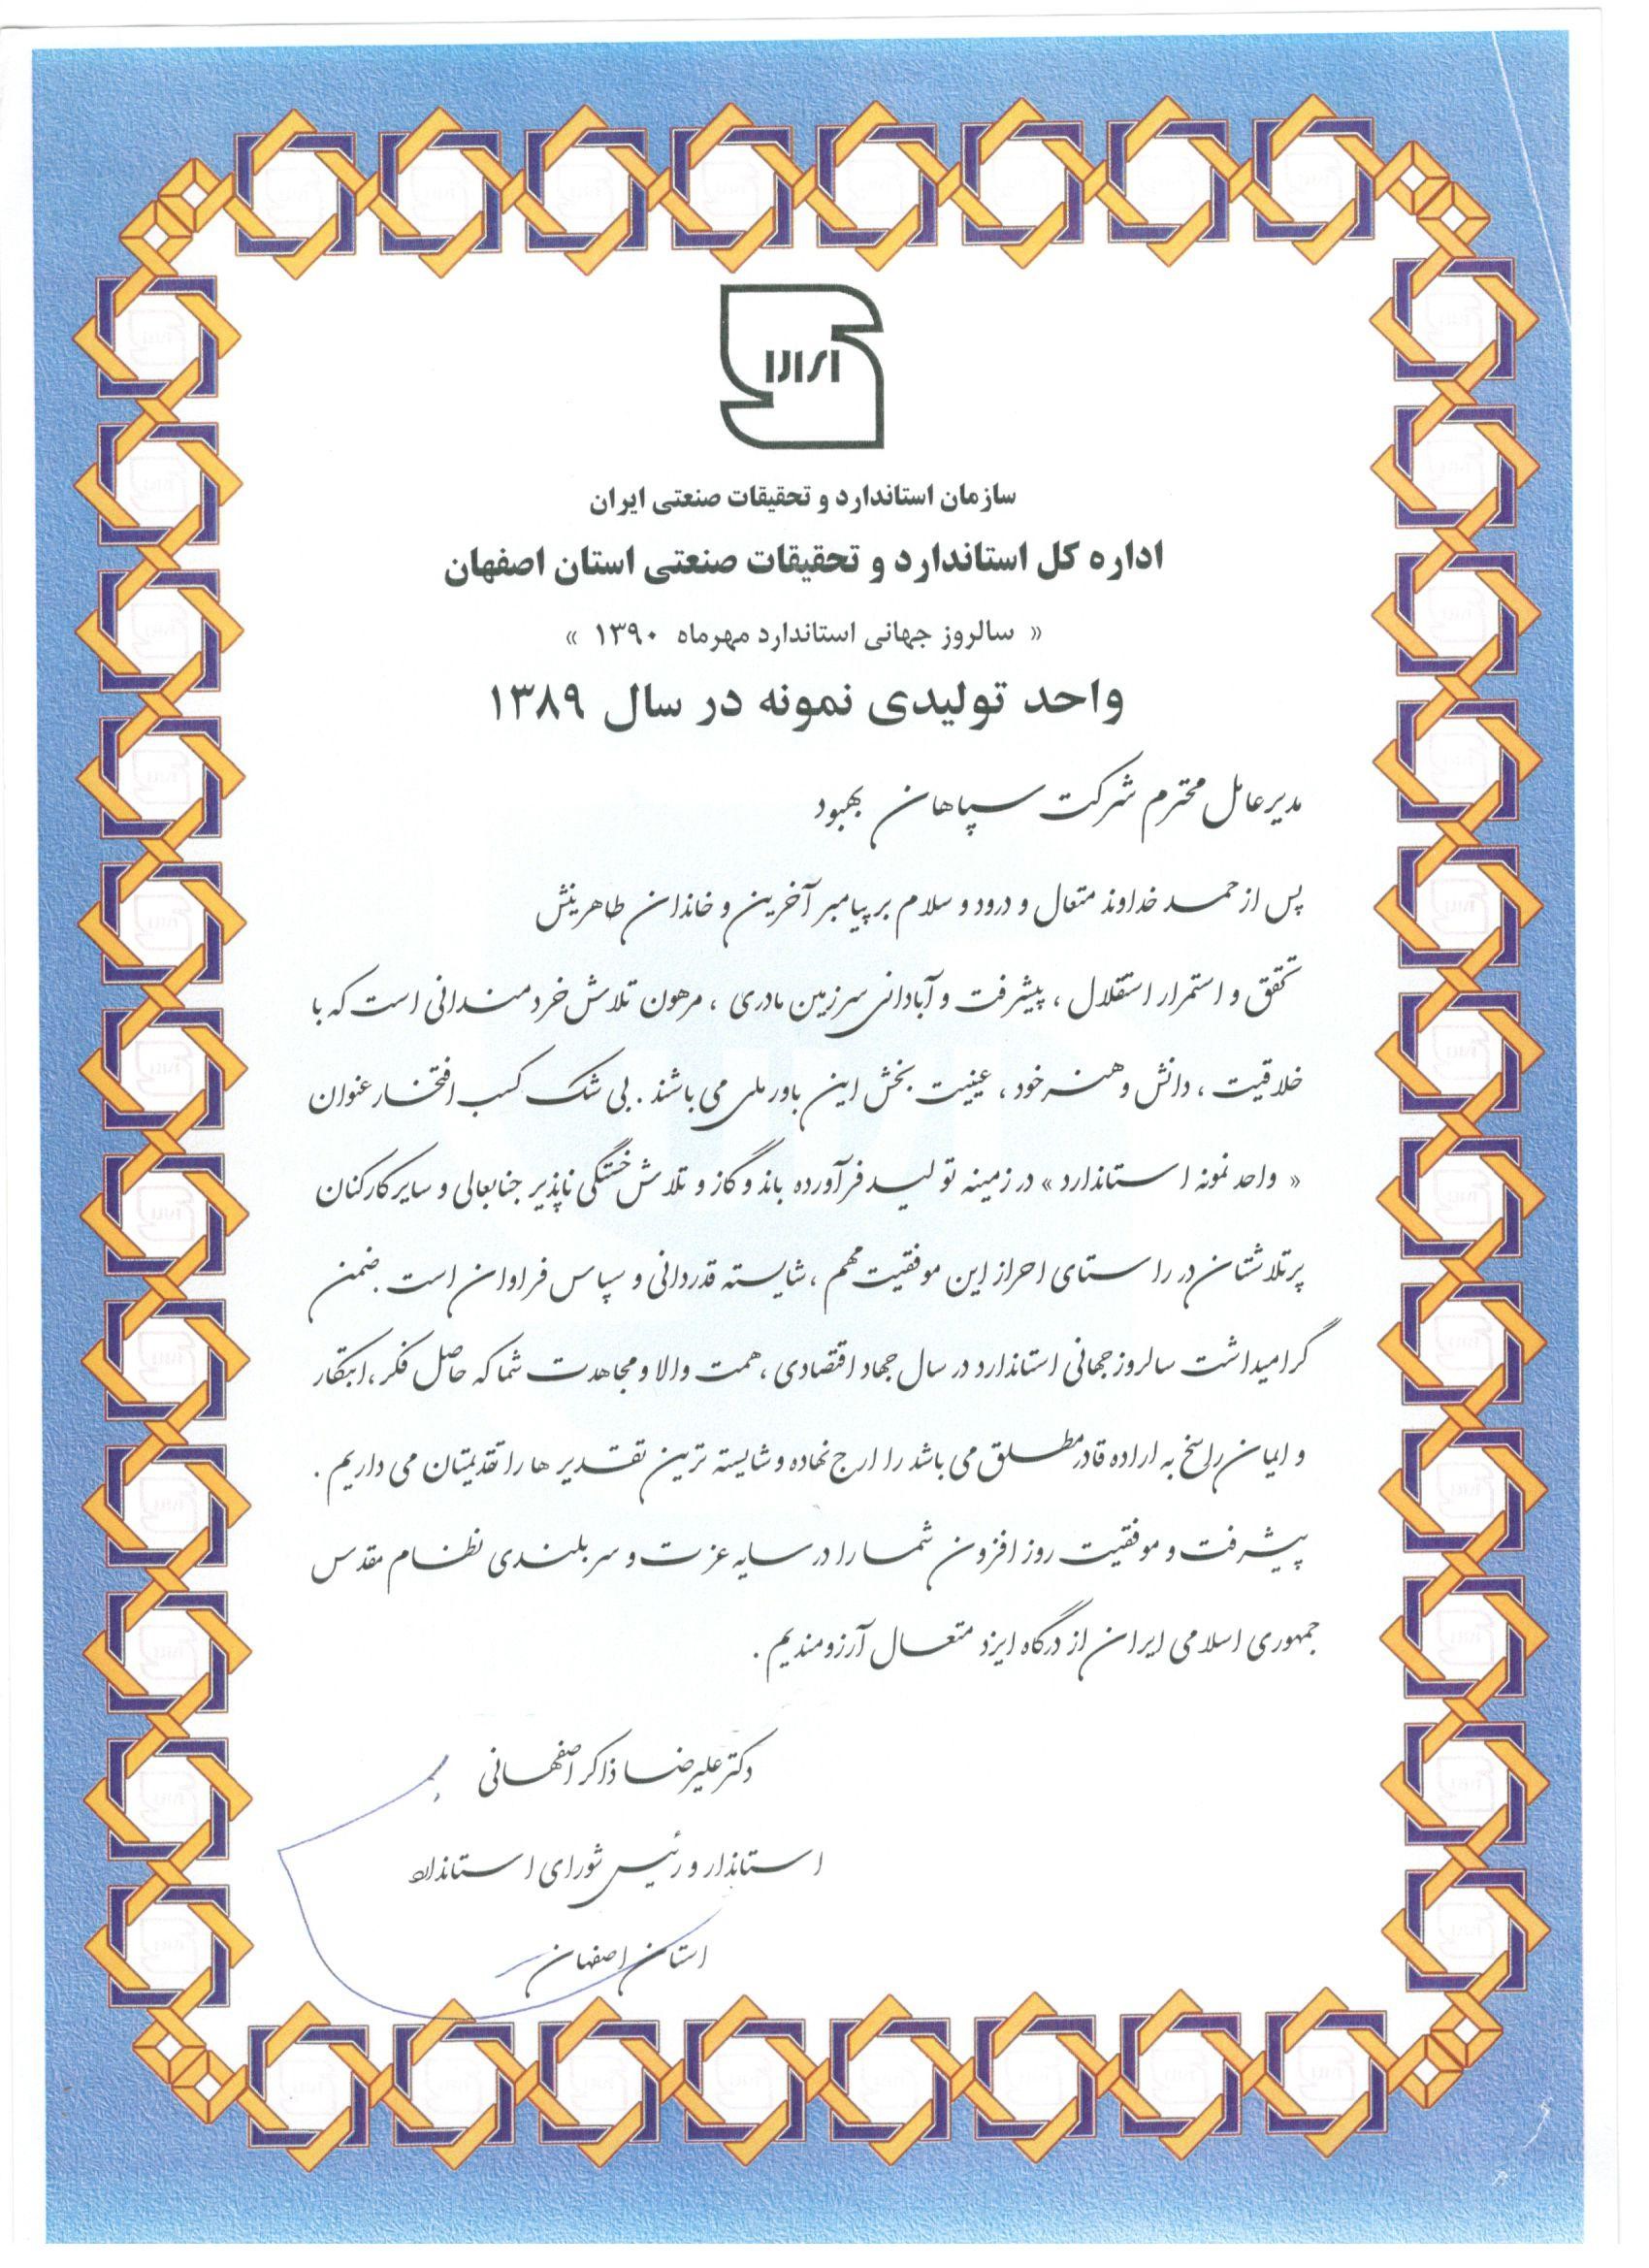 ایران
سازمان استاندارد و تحقیقات صنعتی ایران
اداره کل استاندارد و تحقیقات صنعتی استان اصفهان
« سالروز جهانی استاندارد مهرماه ۱۳۹۰ »
واحد تولیدی نمونه در سال ۱۳۸۹
مدیرعامل محترم شرکت سپاهان بهبود
پس از حمد خداوند متعال و درود و سلام بر پیامبر آخرین و خاندان طاهرینش
تحقق و استمرار استقلال ، پیشرفت و آبادانی سرزمین مادری ، مرهون تلاش خردمندانی است که با
خلاقیت ، دانش و هنر خود ، عینیت بخش این باور ملی می باشند . بی شک کسب افتخار عنوان
« واحد نمونه استاندارد » در زمینه تولید فرآورده باند و گاز و تلاش خستگی ناپذیر جنابعالی و سایر کارکنان
پرتلاشتان در راستای احراز این موفقیت مهم ، شایسته قدردانی و سپاس فراوان است . ضمن
گرامیداشت سالروز جهانی استاندارد در سال جهاد اقتصادی ، همت والا و مجاهدت شما که حاصل فکر ، ابتکار
و ایمان راسخ به اراده قادر مطلق می باشد را ارج نهاده و شایسته ترین تقدیر ها را تقدیمتان می داریم .
پیشرفت و موفقیت روز افزون شما را در سایه عزت و سربلندی نظام مقدس
جمهوری اسلامی ایران از درگاه ایزد متعال آرزومندیم .
دکتر علیرضا ذاکر اصفهانی
استاندار و رئیس شورای استاندارد
استان اصفهان